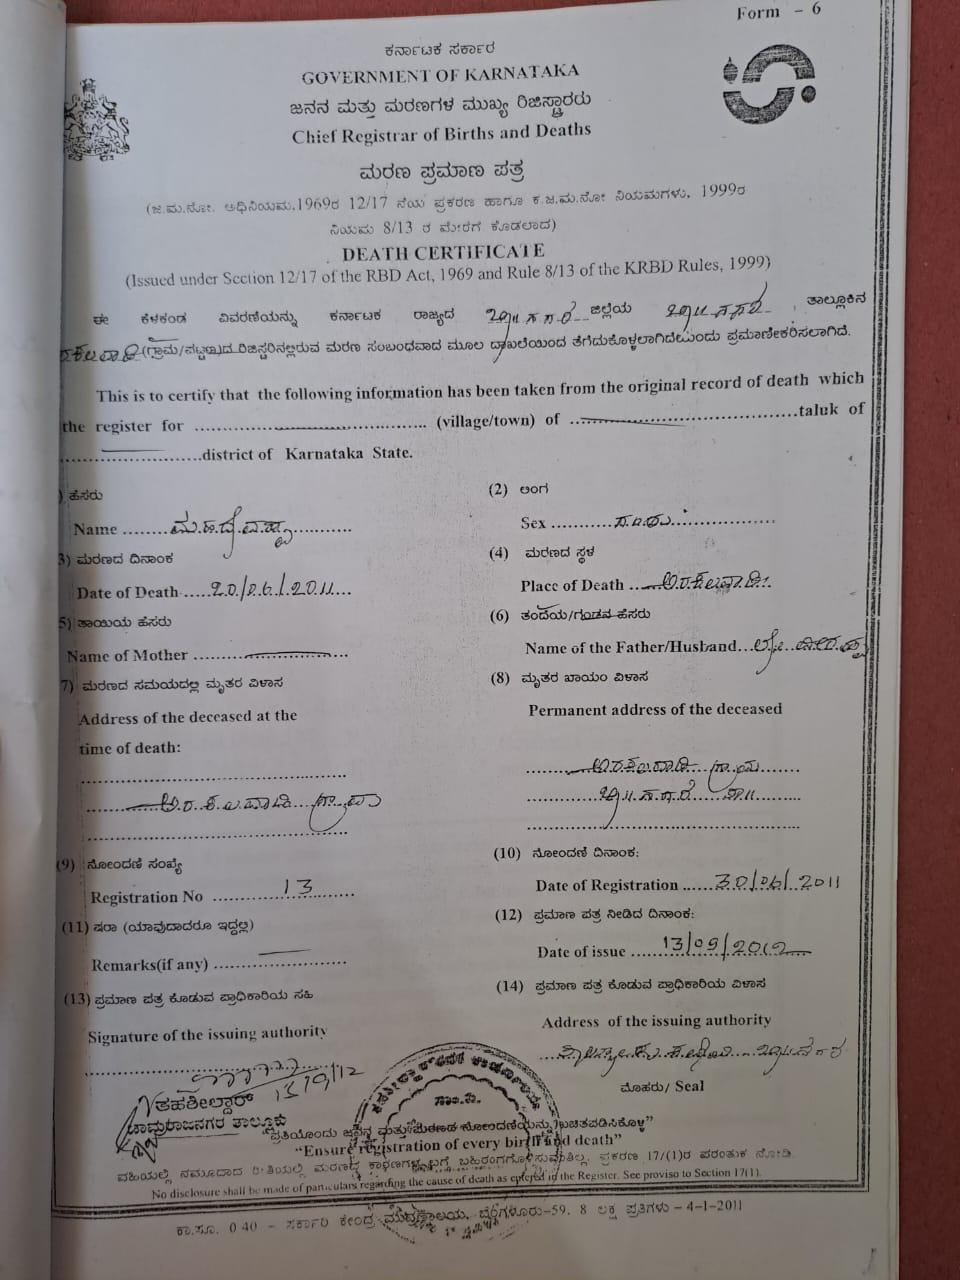 Form - 6
ಕರ್ನಾಟಕ ಸರ್ಕಾರ
GOVERNMENT OF KARNATAKA
ಜನನ ಮತ್ತು ಮರಣಗಳ ಮುಖ್ಯ ರಿಜಿಸ್ಟ್ರಾರರು
Chief Registrar of Births and Deaths
ಮರಣ ಪ್ರಮಾಣ ಪತ್ರ
(ಜ.ಮ.ನೋ. ಅಧಿನಿಯಮ,1969ರ 12/17 ನೆಯ ಪ್ರಕರಣ ಹಾಗೂ ಕ.ಜ.ಮ.ನೋ ನಿಯಮಗಳು, 1999ರ
ನಿಯಮ 8/13 ರ ಮೇರೆಗೆ ಕೊಡಲಾದ)
DEATH CERTIFICATE
(Issued under Section 12/17 of the RBD Act, 1969 and Rule 8/13 of the KRBD Rules, 1999)
ಈ ಕೆಳಕಂಡ ವಿವರಣೆಯನ್ನು ಕರ್ನಾಟಕ ರಾಜ್ಯದ ಜಿಲ್ಲೆಯ ತಾಲ್ಲೂಕಿನ
(ಗ್ರಾಮ/ಪಟ್ಟಣ)ದ ರಿಜಿಸ್ಟರಿನಲ್ಲಿರುವ ಮರಣ ಸಂಬಂಧವಾದ ಮೂಲ ದಾಖಲೆಯಿಂದ ತೆಗೆದುಕೊಳ್ಳಲಾಗಿದೆಯೆಂದು ಪ್ರಮಾಣೀಕರಿಸಲಾಗಿದೆ.
This is to certify that the following information has been taken from the original record of death which
the register for .......... (village/town) of ..........taluk of
..........district of Karnataka State.
) ಹೆಸರು
Name
(2) ಅಂಗ
Sex
3) ಮರಣದ ದಿನಾಂಕ
Date of Death 20/06/2011
(4) ಮರಣದ ಸ್ಥಳ
Place of Death ಅರಕಲವಾಡಿ
5) ತಾಯಿಯ ಹೆಸರು
Name of Mother
(6) ತಂದೆಯ/ಗಂಡನ ಹೆಸರು
Name of the Father/Husband
7) ಮರಣದ ಸಮಯದಲ್ಲಿ ಮೃತರ ವಿಳಾಸ
Address of the deceased at the
time of death:
ಅರಕಲವಾಡಿ ಗ್ರಾಮ
(8) ಮೃತರ ಖಾಯಂ ವಿಳಾಸ
Permanent address of the deceased
ಅರಕಲವಾಡಿ ಗ್ರಾಮ
(9) ನೋಂದಣಿ ಸಂಖ್ಯೆ
Registration No 13
(10) ನೋಂದಣಿ ದಿನಾಂಕ:
Date of Registration 30/06/2011
(11) ಷರಾ (ಯಾವುದಾದರೂ ಇದ್ದಲ್ಲಿ)
Remarks(if any)
(12) ಪ್ರಮಾಣ ಪತ್ರ ನೀಡಿದ ದಿನಾಂಕ:
Date of issue 13/09/2012
(13) ಪ್ರಮಾಣ ಪತ್ರ ಕೊಡುವ ಪ್ರಾಧಿಕಾರಿಯ ಸಹಿ
Signature of the issuing authority
(14) ಪ್ರಮಾಣ ಪತ್ರ ಕೊಡುವ ಪ್ರಾಧಿಕಾರಿಯ ವಿಳಾಸ
Address of the issuing authority
ಮೊಹರು/ Seal
ತಹಶೀಲ್ದಾರ್
ಚಾಮರಾಜನಗರ ತಾಲ್ಲೂಕು
"ಪ್ರತಿಯೊಂದು ಜನನ ಮತ್ತು ಮರಣದ ನೋಂದಣಿಯನ್ನು ಖಚಿತಪಡಿಸಿಕೊಳ್ಳಿ"
"Ensure registration of every birth and death"
ವಹಿಯಲ್ಲಿ ನಮೂದಾದ ರೀತಿಯಲ್ಲಿ ಮರಣದ ಕಾರಣಗಳ ಬಗ್ಗೆ ಬಹಿರಂಗಗೊಳಿಸುವಂತಿಲ್ಲ. ಪ್ರಕರಣ 17/(1)ರ ಪರಂತುಕ ನೋಡಿ.
No disclosure shall be made of particulars regarding the cause of death as entered in the Register. See proviso to Section 17(1).
ಕಾ.ಸೂ. 040 - ಸರ್ಕಾರಿ ಕೇಂದ್ರ ಮುದ್ರಣಾಲಯ, ಬೆಂಗಳೂರು-59. 8 ಲಕ್ಷ ಪ್ರತಿಗಳು - 4-1-2011